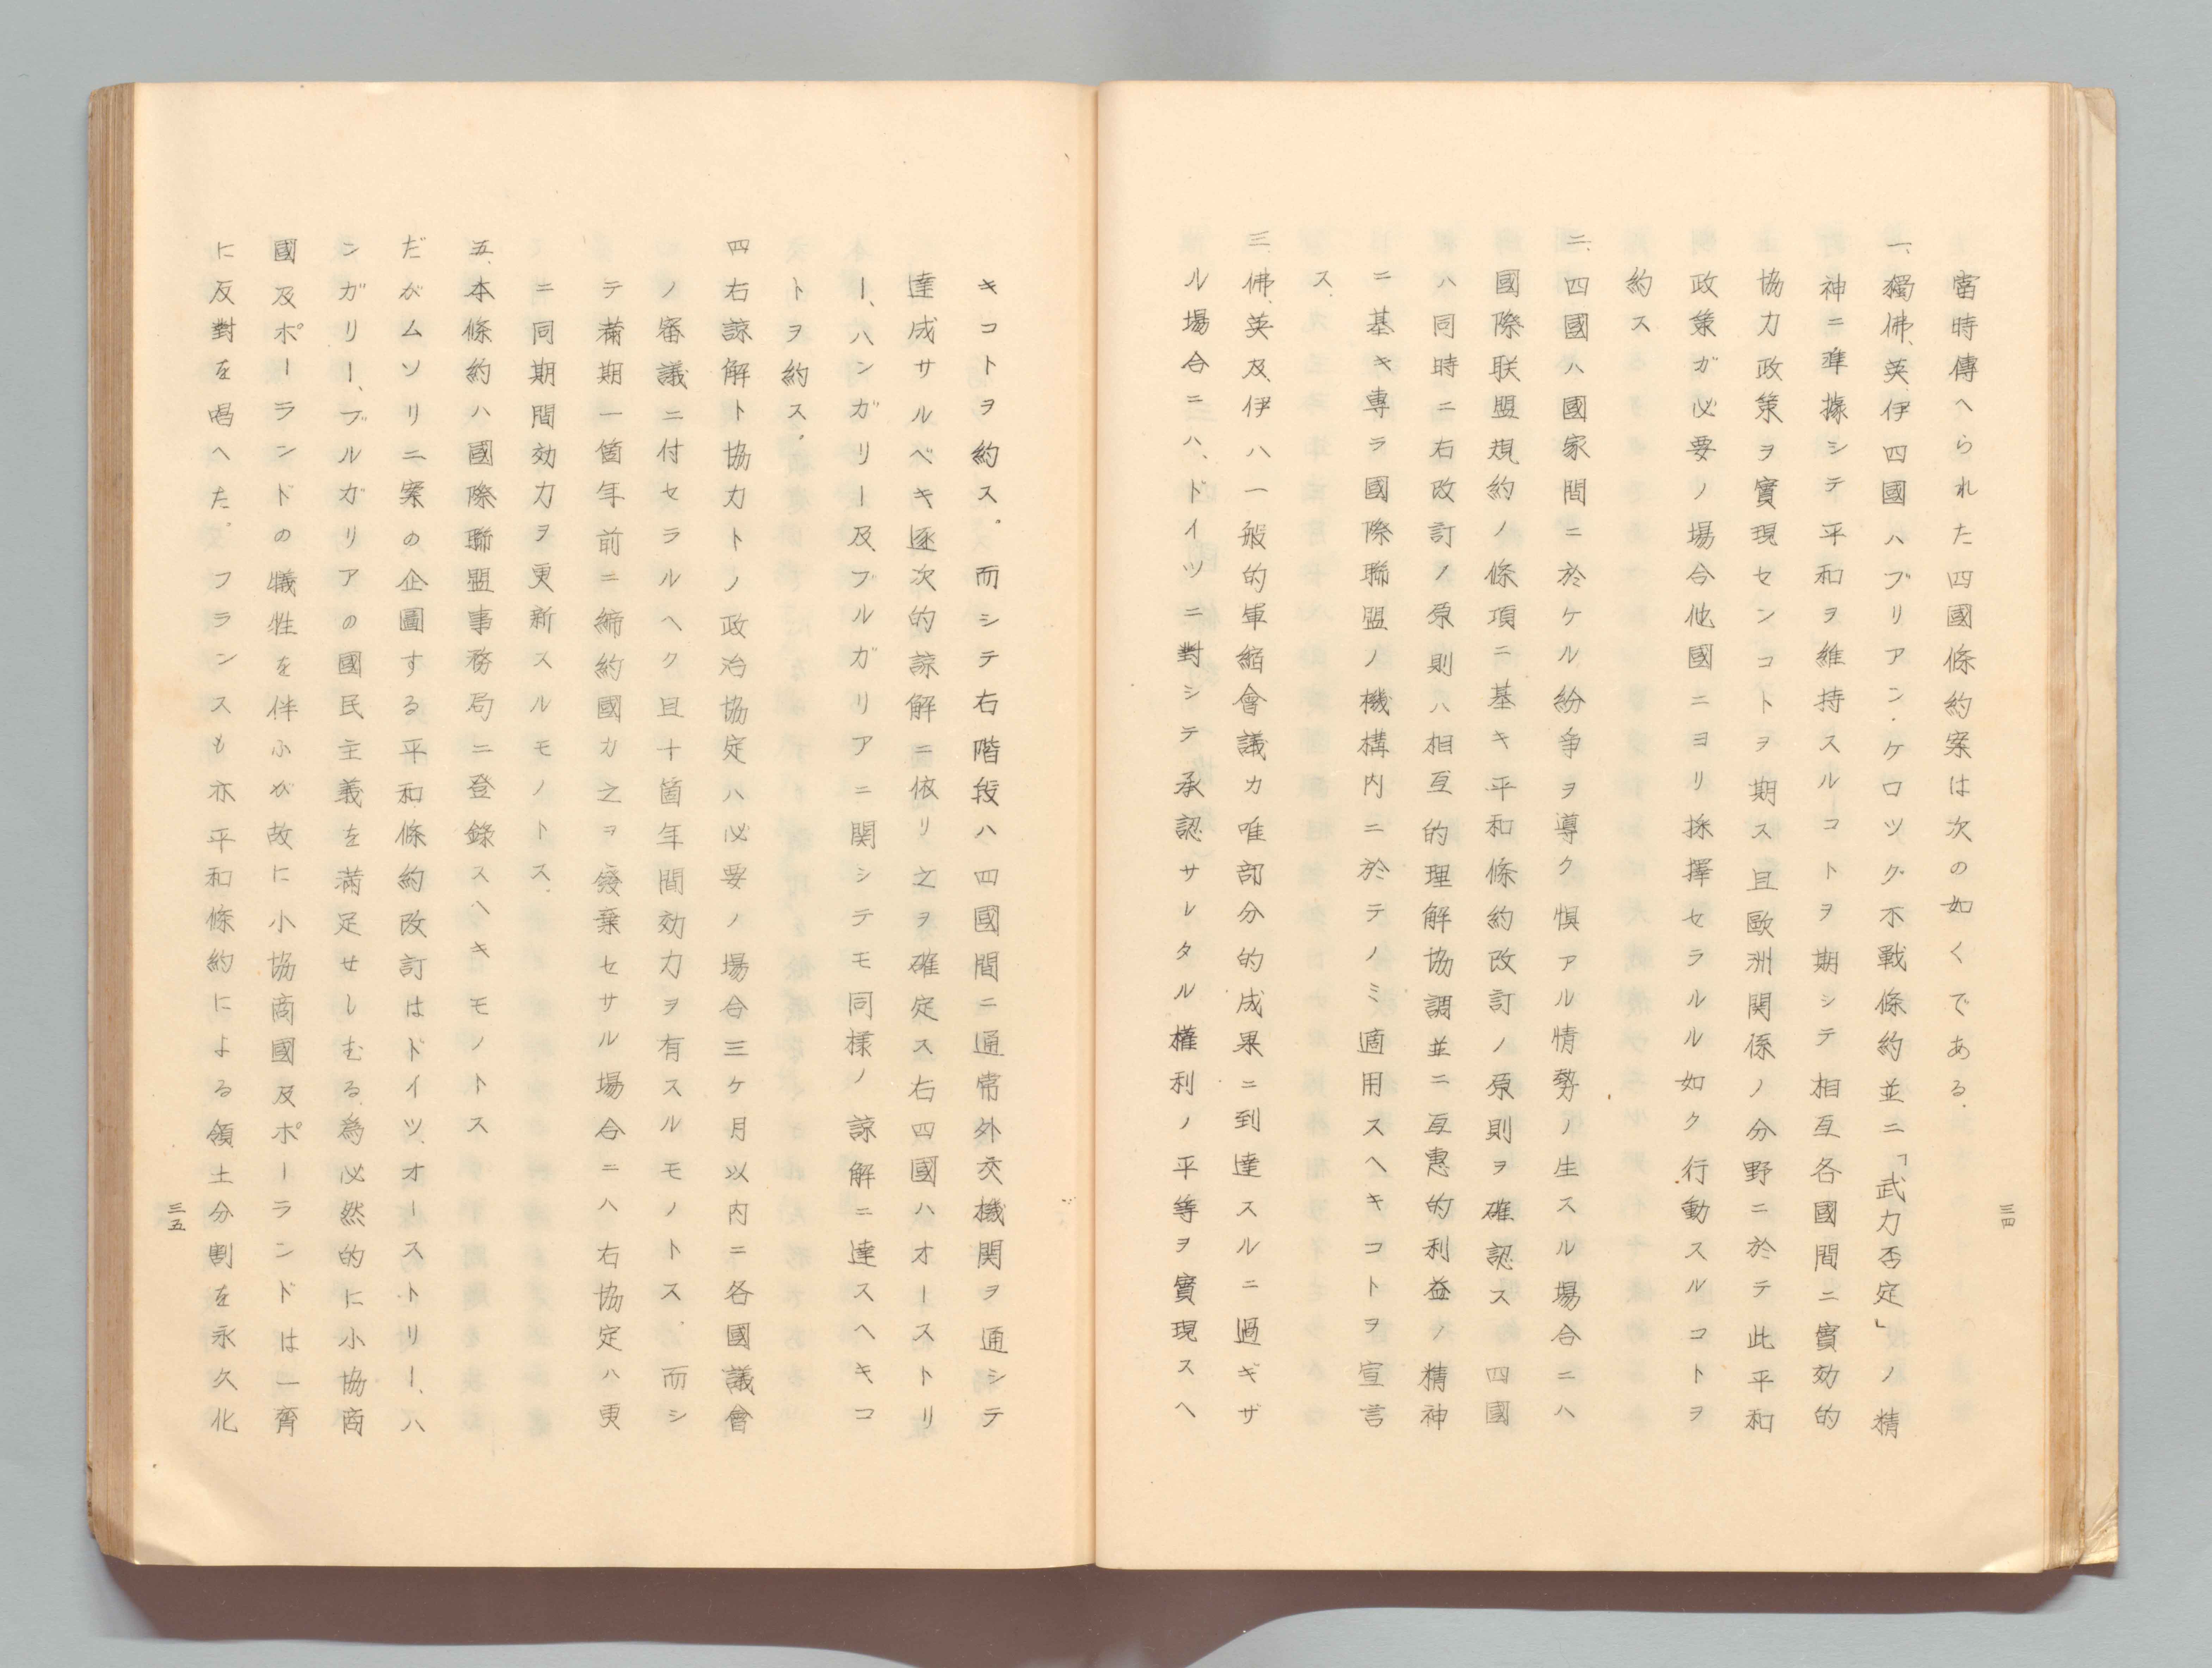 當時傳へられた四國條約案は次の如くである.
一、獨、佛、英、伊四國ハブリアン・ケロツグ不戰條約並ニ「武力否定」ノ精
神ニ準據シテ平和ヲ維持スルコトヲ期シテ相互各國間ニ實効的
協力政策ヲ實現センコトヲ期ス且歐洲関係ノ分野ニ於テ此平和
政策ガ必要ノ場合他國ニヨリ採擇セラルル如ク行動スルコトヲ
約ス
二、四國ハ國家間ニ於ケル紛争ヲ導ク惧アル情勢ノ生スル場合ニハ
國際联盟規約ノ條項ニ基キ平和條約改訂ノ原則ヲ確認ス 四國
ハ同時ニ右改訂ノ原則ハ相互的理解協調並ニ互惠的利益ノ精神
ニ基キ專ラ國際聯盟ノ機構内ニ於テノミ適用スヘキコトヲ宣言
ス.
三、佛、英及伊ハ一般的軍縮會議カ唯部分的成果ニ到達スルニ過ギザ
ル場合ニハ、ドイツニ對シテ承認サレタル權利ノ平等ヲ實現スヘ
三四
キコトヲ約ス。而シテ右階段ハ四國間ニ通常外交機関ヲ通シテ
達成サルベキ逐次的諒解ニ依リ之ヲ確定ス右四國ハオーストリ
ー、ハンガリー及ブルガリアニ関シテモ同樣ノ諒解ニ達スヘキコ
トヲ約ス。
四右諒解ト協力トノ政治協定ハ必要ノ場合三ケ月以内ニ各國議會
ノ審議ニ付セラルヘク且十箇年間効力ヲ有スルモノトス.而シ
テ滿期一箇年前ニ締約國カ之ヲ廢棄セサル場合ニハ右協定ハ更
ニ同期間効力ヲ更新スルモノトス.
五、本條約ハ國際聯盟事務局ニ登錄スヘキモノトス
だがムソリニ案の企圖する平和條約改訂はドイツ、オーストリー、ハ
ンガリー、ブルガリアの國民主義を滿足せしむる爲必然的に小協商
國及ポーランドの犠牲を伴ふが故に小協商國及ポーランドは一齊
に反對を唱へた。フランスも亦平和條約による領土分割を永久化
三五